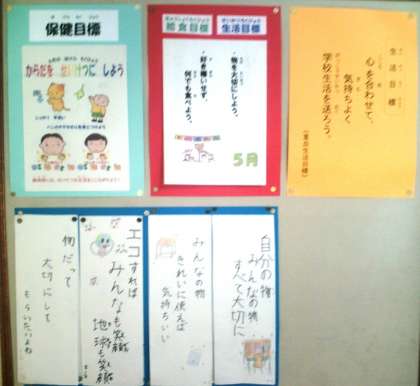 保健目標
からだを せいけつに しよう
給食目標
生活目標
・物を大切にしよう。
・好き嫌いせず、
何でも食べよう。
5月
生活目標
心を合わせて、
気持ちよく
学校生活を送ろう。
自分の物
みんなの物
すべて大切に
みんなの物
きれいに使えば
気持ちいい
エコすれば
みんなも笑顔
地球も笑顔
物だって
大切にして
もらいたいよね